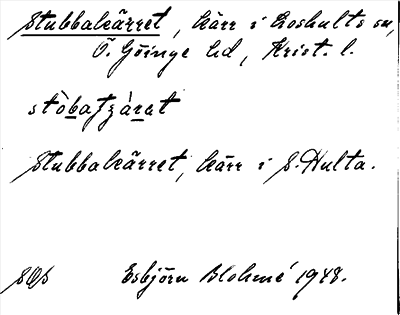 Stubbakärret, kärr i Loshults sn,
Ö. Göinge hd, Krist. l.
stòbatɟàrat
Stubbakärret, kärr i S. Hulta.
Esbjörn Blohmé 1948.